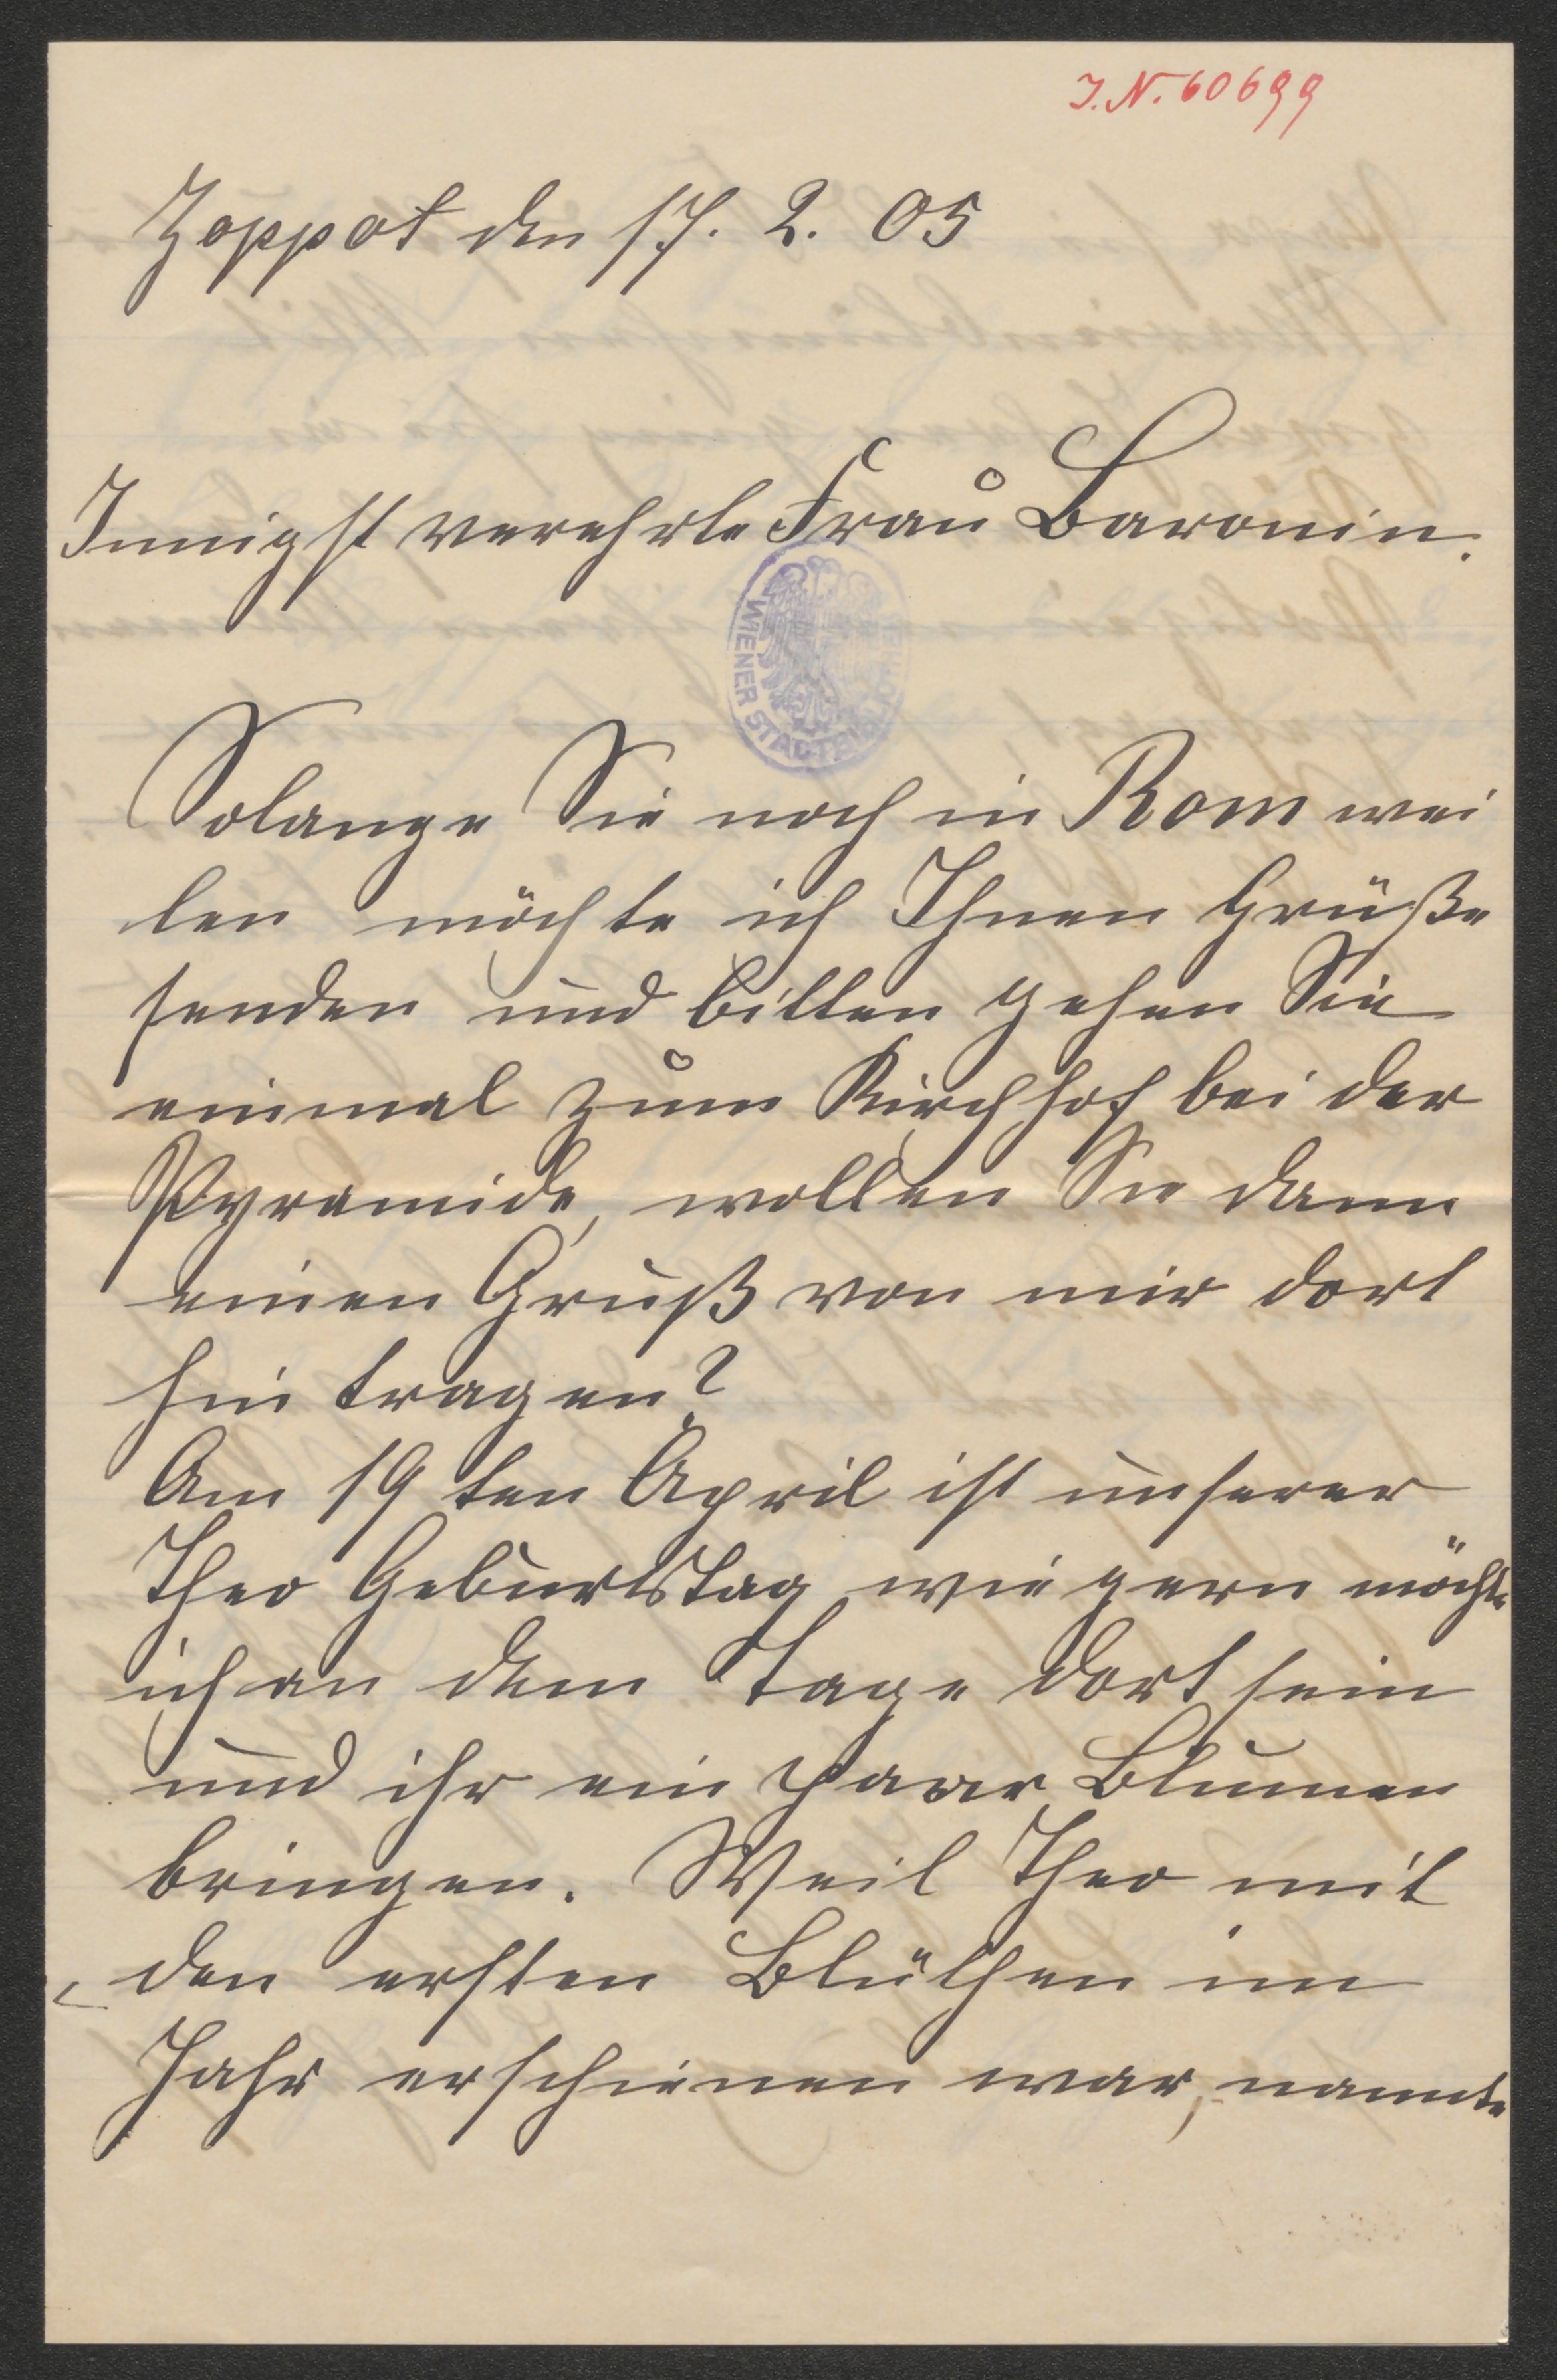 I.N. 60699
Zoppot den 17. 2. 05
Innigst verehrte Frau Baronin.
WIENER STADTBIBLIOTHEK
Solange Sie noch in Rom wei
len möchte ich Ihnen Grüße
senden und bitten gehen Sie
einmal zum Kirchhof bei der
Pyramide, wollen Sie dann
einen Gruß von mir dort
hin tragen?
Am 19 ten April ist unserer
Theo Geburtstag wie gern möchte
ich an dem Tage dort sein
und ihr ein paar Blumen
bringen. Weil Theo mit
den ersten Blüthen im
Jahr erschienen war, nannte